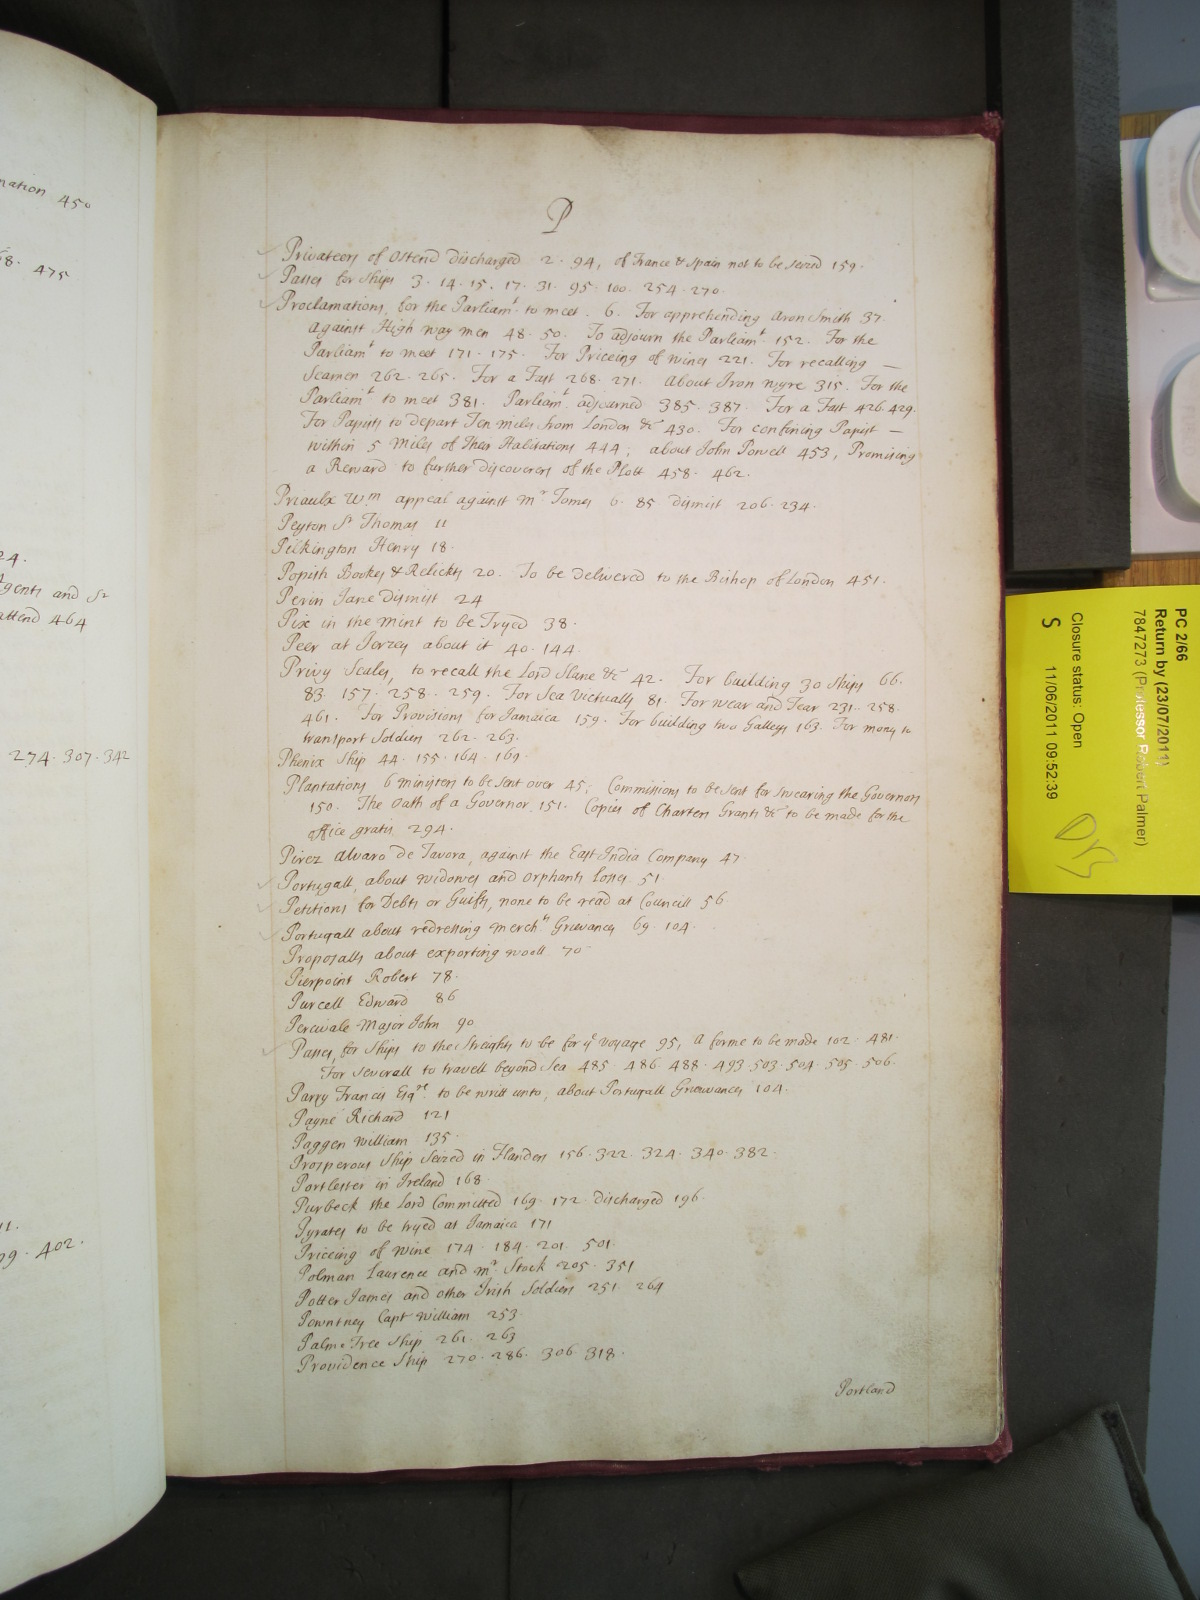 mation 450
58. 475
24.
Agents and Sr
attend 464
274. 307. 342
11.
402.
P
Privateers of Ostend discharged 2. 94, of France & Spain not to be seized 159.
Passes for Ships 3. 14. 15. 17. 31. 95. 100. 254. 270.
Proclamations, for the Parliamt to meet. 6. For apprehending Aron Smith 37.
Against High way men 48. 50. To adjourn the Parliamt 152. For the
Parliamt to meet 171. 175. For Priceing of wines 221. For recalling —
Seamen 262. 265. For a Fast 268. 271. About Iron wyre 315. For the
Parliamt to meet 381. Parliamt adjourned 385. 387. For a Fast 426. 429.
For Papists to depart Ten miles from London &c 430. For confining Papist —
within 5 Miles of their Habitations 444, about John Powell 453, Promising
a Reward to further discoverers of the Plott 458. 462.
Priaulx Wm appeal against Mr Tomes 6. 85 dismist 206. 234.
Peyton Sr Thomas 11
Pickington Henry 18.
Popish Bookes & Relicks 20. To be delivered to the Bishop of London 451.
Perin Jane Dismist 24
Pix in the mint to be Tryed 38.
Peer at Jerzey about it 40. 144.
Privy Seales, to recall the Lord Slane &c 42. For building 30 Ships 66.
83. 157. 258. 259. For Sea Victualls 81. For wear and Tear 231. 258.
461. For Provisions for Jamaica 159. For building two Galleys 163. For mony to
transport Soldiers 262. 263.
Phenix Ship 44. 155. 164. 169.
Plantations 6 ministers to be sent over 45, Commissions to be sent for swearing the Governors
150. The Oath of a Governor 151. Copies of Charters Grants &c to be made for the
office gratis 294.
Pirez Alvaro de Tavora, against the East India Company 47
Portugall, about widowes and Orphants Losses 51.
Petitions for Debts or Guifts, none to be read at Councill 56
Portugall about redressing Merchts Grievances 69. 104.
Proposalls about exporting wooll 70
Pierpoint Robert 78.
Purcell Edward 86
Percivale Major John 90
Passes, for Ships to the Streights to be for ye voyage 95, A forme to be made 102. 481.
For severall to travell beyond Sea 485 486. 488. 493. 503. 504. 505. 506.
Parry Francis Esqre to be writt unto, about Portugall Grievances 104.
Payne Richard 121
Paggen William 135.
Prosperous Ship Seized in Flanders 156. 322. 324. 340. 382.
Portlester in Ireland 168
Purbeck the Lord Committed 169. 172. Discharged 196.
Pyrates to be tryed at Jamaica 171
Priceing of wine 174. 184. 201. 501.
Polman Laurence and Mr Stock 205. 351
Potter James and other Irish Soldiers 251. 264
Powntney Capt William 253.
Palme Tree Ship 261. 263
Providence Ship 270. 286. 306. 318.
Portland
PC 2/66
Return by (23/07/2011)
7847273 (Professor Robert Palmer)
Closure status: Open
S 11/06/2011 09:52:39